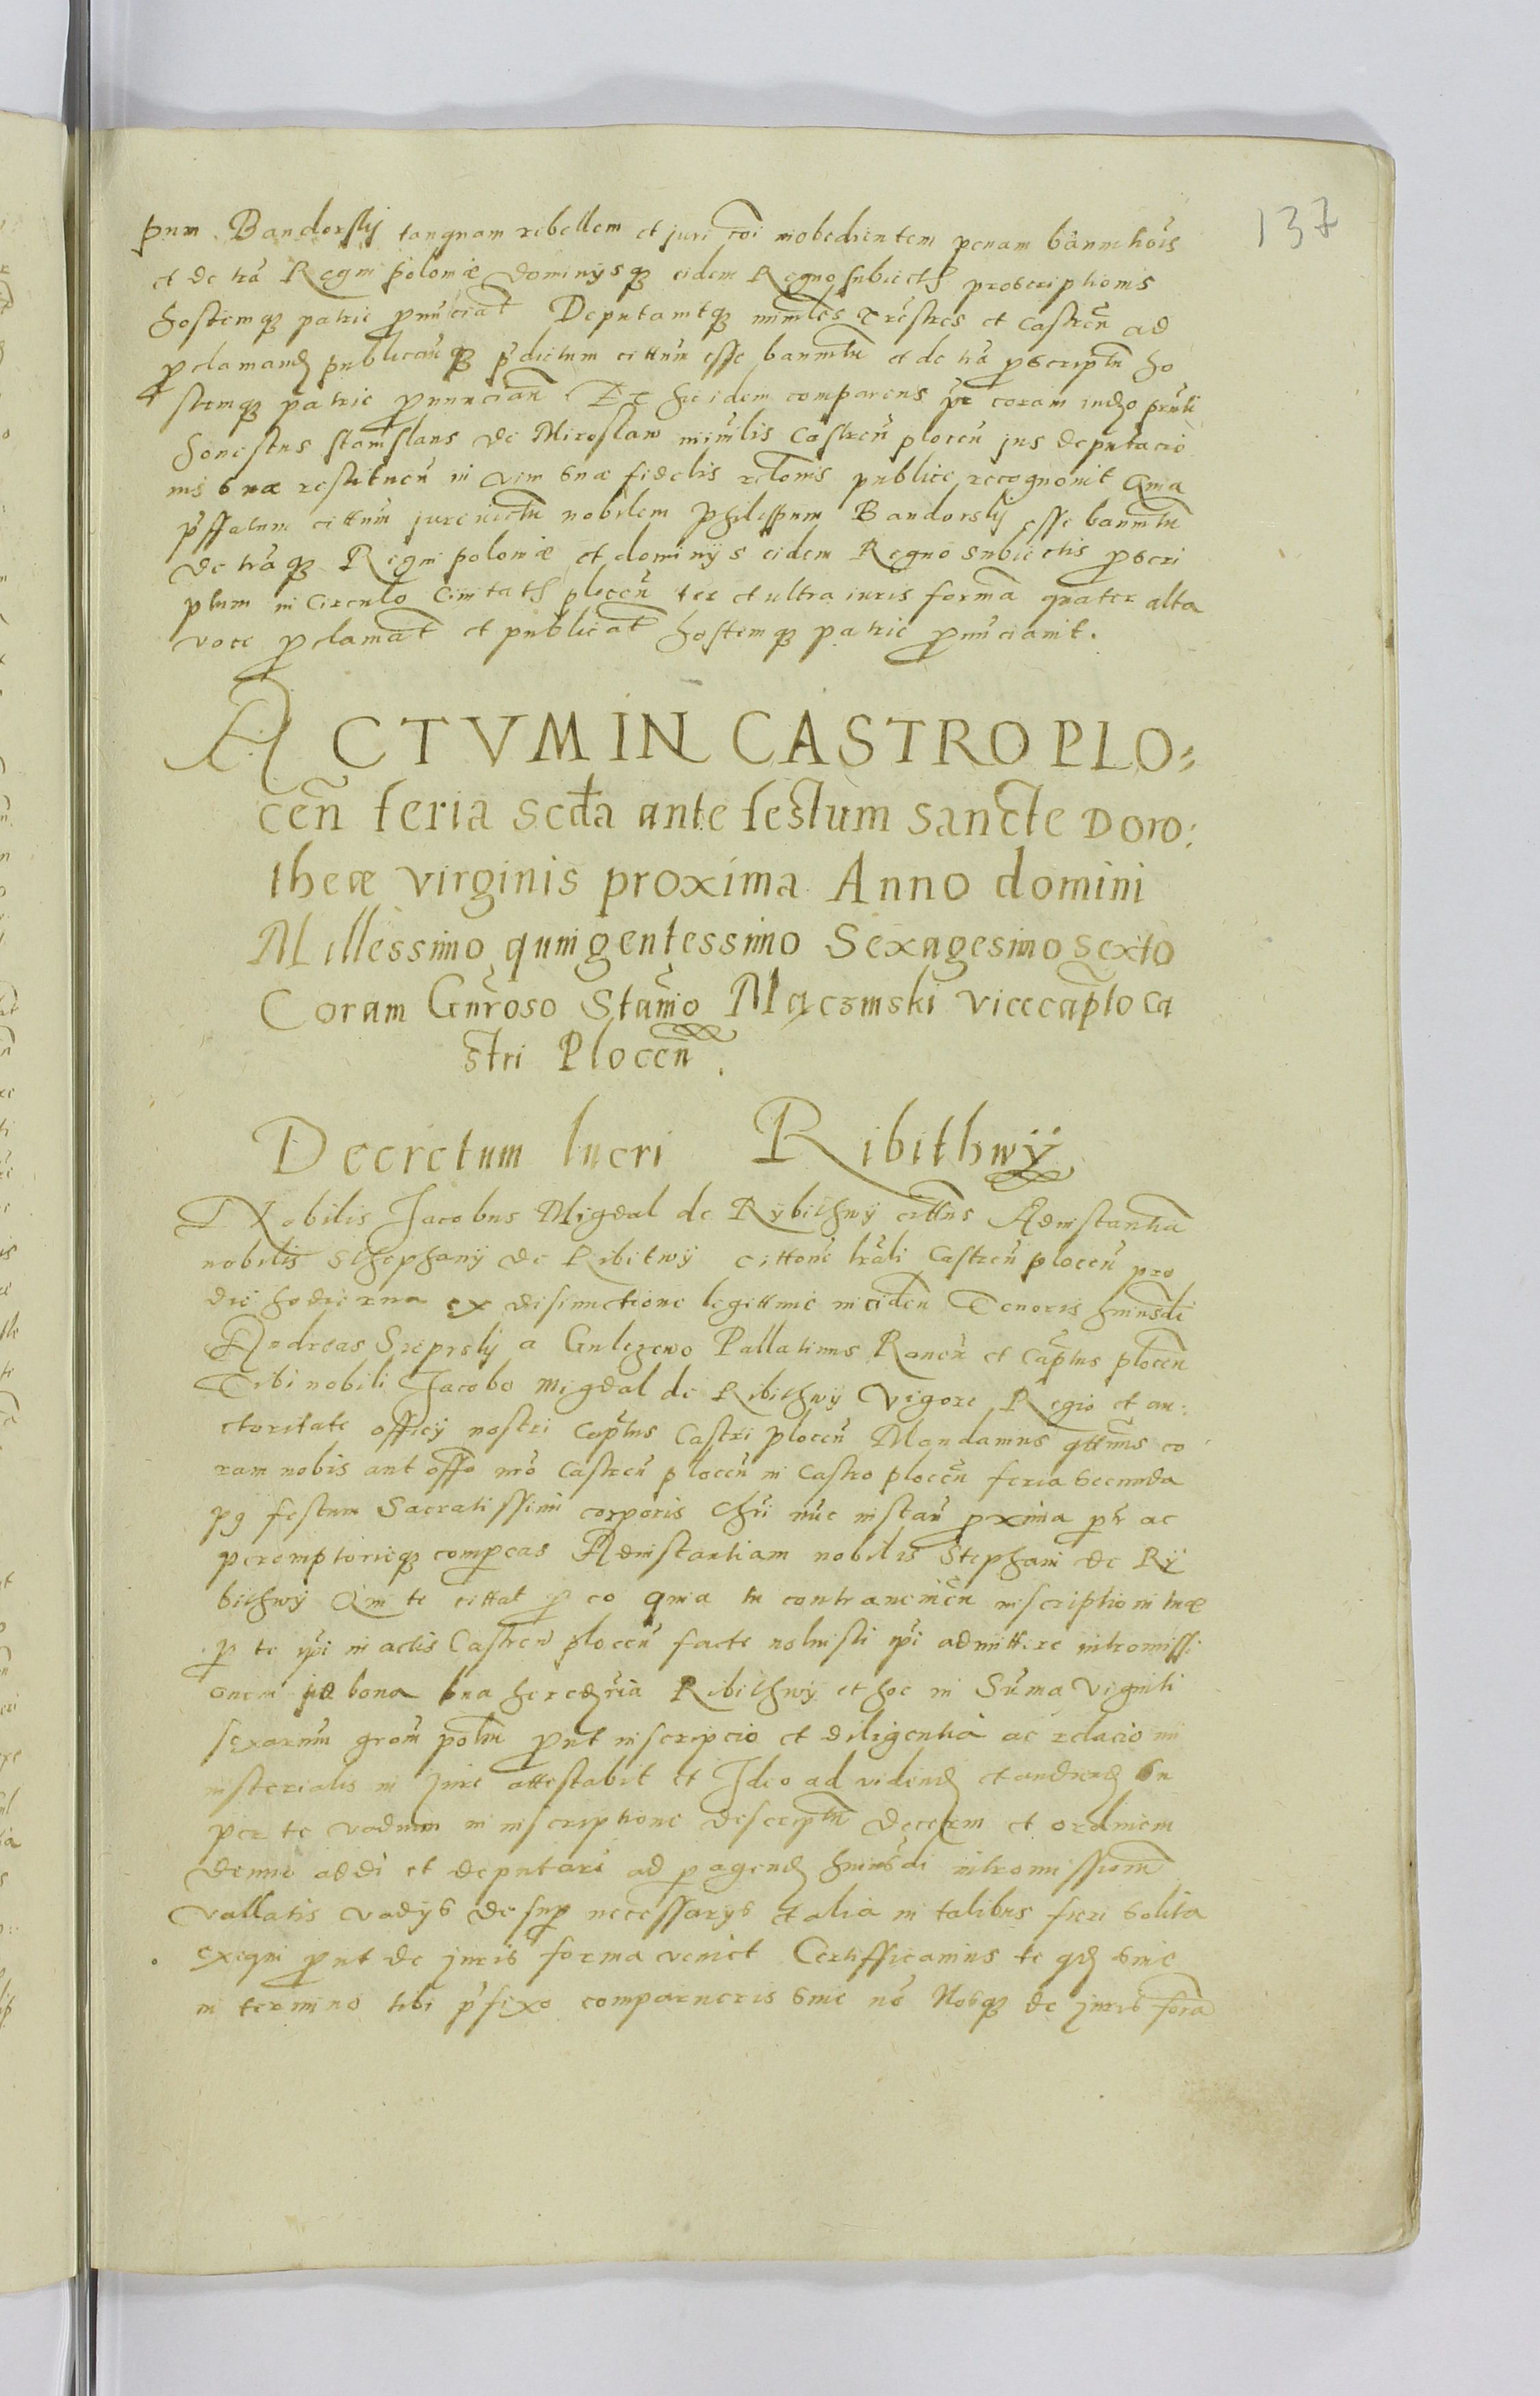 137
pum Bandorskÿ tanquam rebellem et juri coi inobedientem penam bannitiois
et de tra Regni poloniæ dominÿsq3 eidem Regno subiectis proscriptionis
hostemq3 patrie pnuciat Deputamtq3 mimles tresttres et castren ad
pclamand publicanq3 pdictum cittum esse bannitu et de tra pscriptu ho
stemq3 patrie pnuncian Et hic idem comparens coram indo pnti
honestus stanislaus de Miroslaw minilis Castren plocen jus deputacio
nis suæ restituen in vim suæ fidelis relonis publice recognovit Quia
pffatum cittum jurevictu nobilem Philippum Bandorskÿ esse bannitu
de traq3 Regni poloniæ et dominÿs eidem Regno subiectis pscri
ptum in Circulo Civitatis plocen ter et ultra iuris forma quater alta
voce pclamat et publicat hostemq3 patrie pnuciavit.
ACTVM IN CASTRO PLO=
cen feria scda ante festum sancte Doro:
theæ virginis proxima Anno domini
Millessimo quingentessimo Sexagesimo sexto
Coram Gnroso Stanio Mączinski vicecapto Ca
stri Plocen.
Decretum lucri Ribithwÿ
Nobilis Jacobus Migdal de Rÿbithwÿ cittus Adinstantia
nobilis Sthephanÿ de Ribitwÿ cittone trali Castren plocen pro
die hodierna ex disiunctione legittime inciden Tenoris huiusde
Andreas Sieprskÿ a Gulczewo Pallatinus Raven et Captus plocen
Tibi nobili Jacobo Migdal de Ribithwÿ Vigore Regio et au:
ctoritate officÿ nostri Captus Castri plocen Mandamus qttenus co
ram nobis aut offo nro Castren plocen in Castro plocen feria secunda
pg festum Sacratissimi corporis Chri nuc instan pxima ptr ac
peremptorieq3 compeas Adinstantiam nobilis Stephani de Rÿ
bithwÿ Qui te cittat p eo quia tu contravenien inscriptioni tuæ
p te ipi in actis Castren plocen facte noluisti ipi admittere intromissi
onem ad bona tua hereditria Ribithwÿ et hoc in Suma viginti
sexarum grom polm put inscripcio et diligentia ac relacio mi
nisterialis in jure attestabit et Ideo ad vidend et audiend su
per te vadium in inscriptione descriptu decerni et ordinem
denuo addi et deputari ad pagend huiusdi intromissionem
vallatis vadÿs desup necessarÿs et alia in talibus fieri solita
exequi put de juris forma veniet Certifficamus te qd sive
in termino tibi pfixo comparueris sive no Nosq3 de juris forma